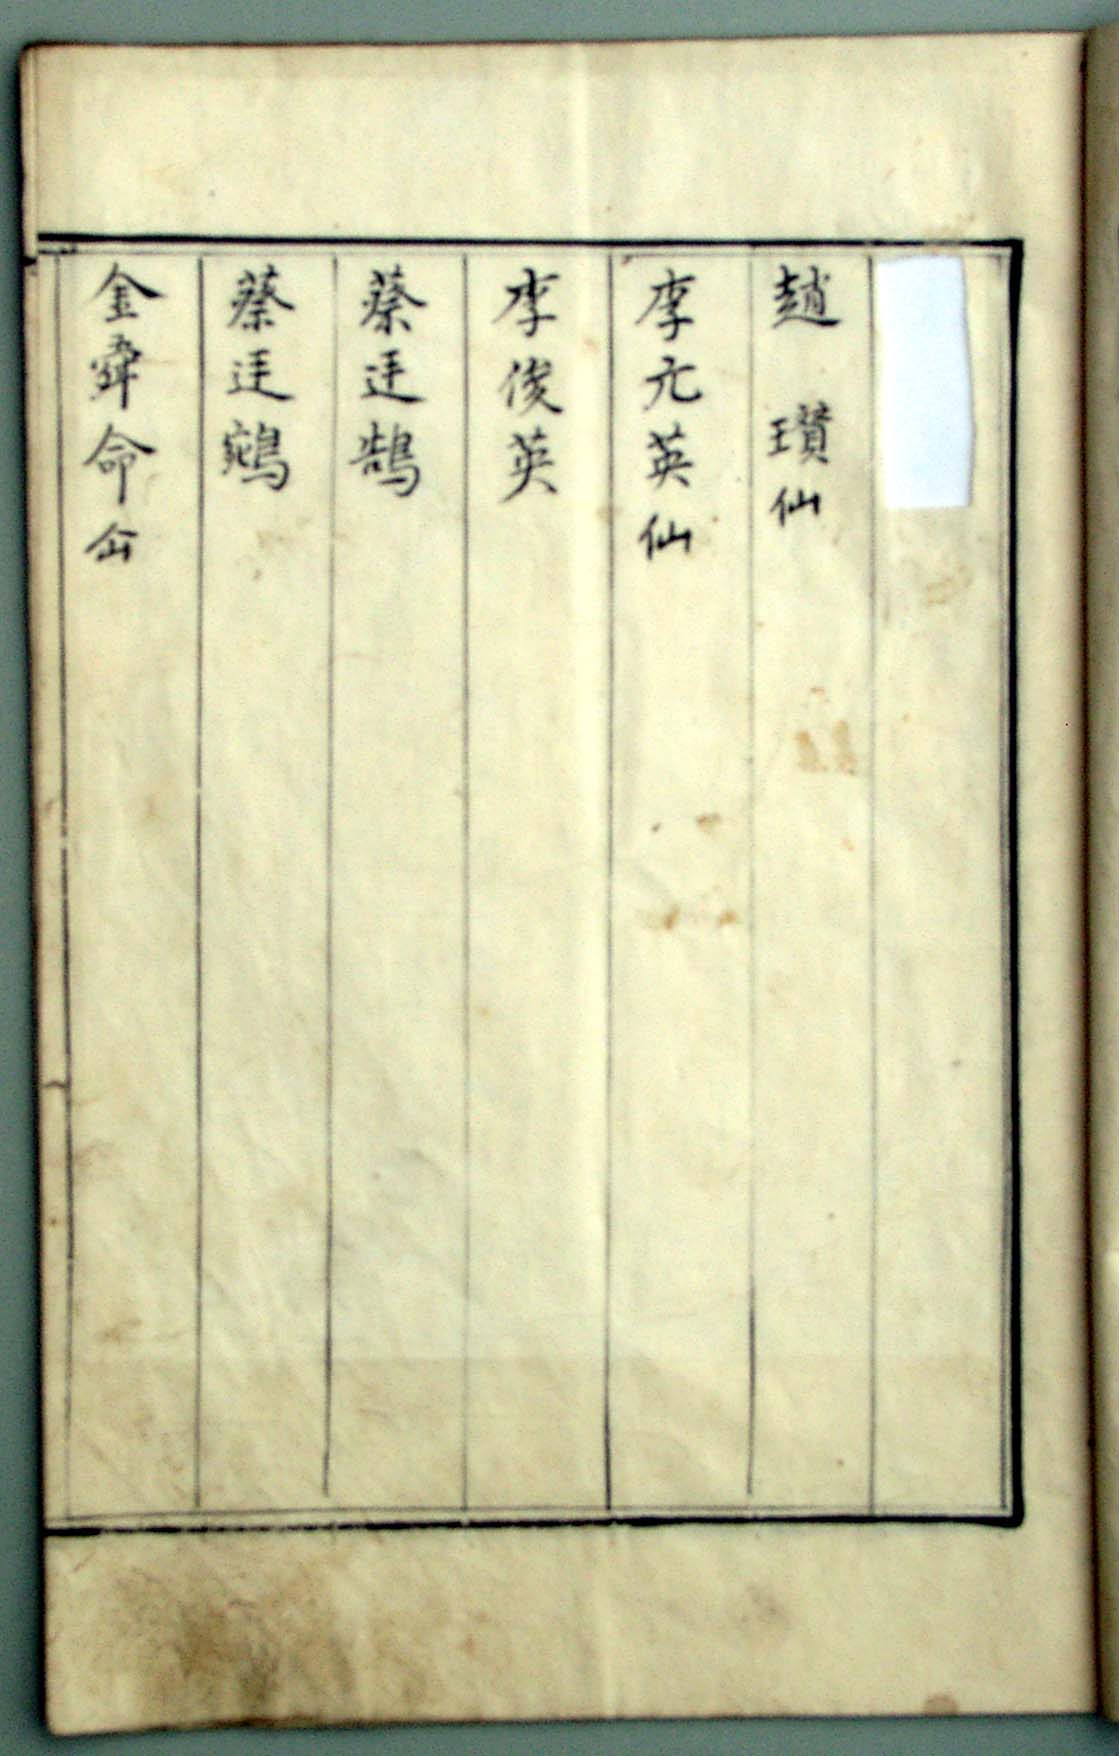 趙瓚仙
李元英仙
李俊英
蔡廷鵠
蔡廷
金舜命仚